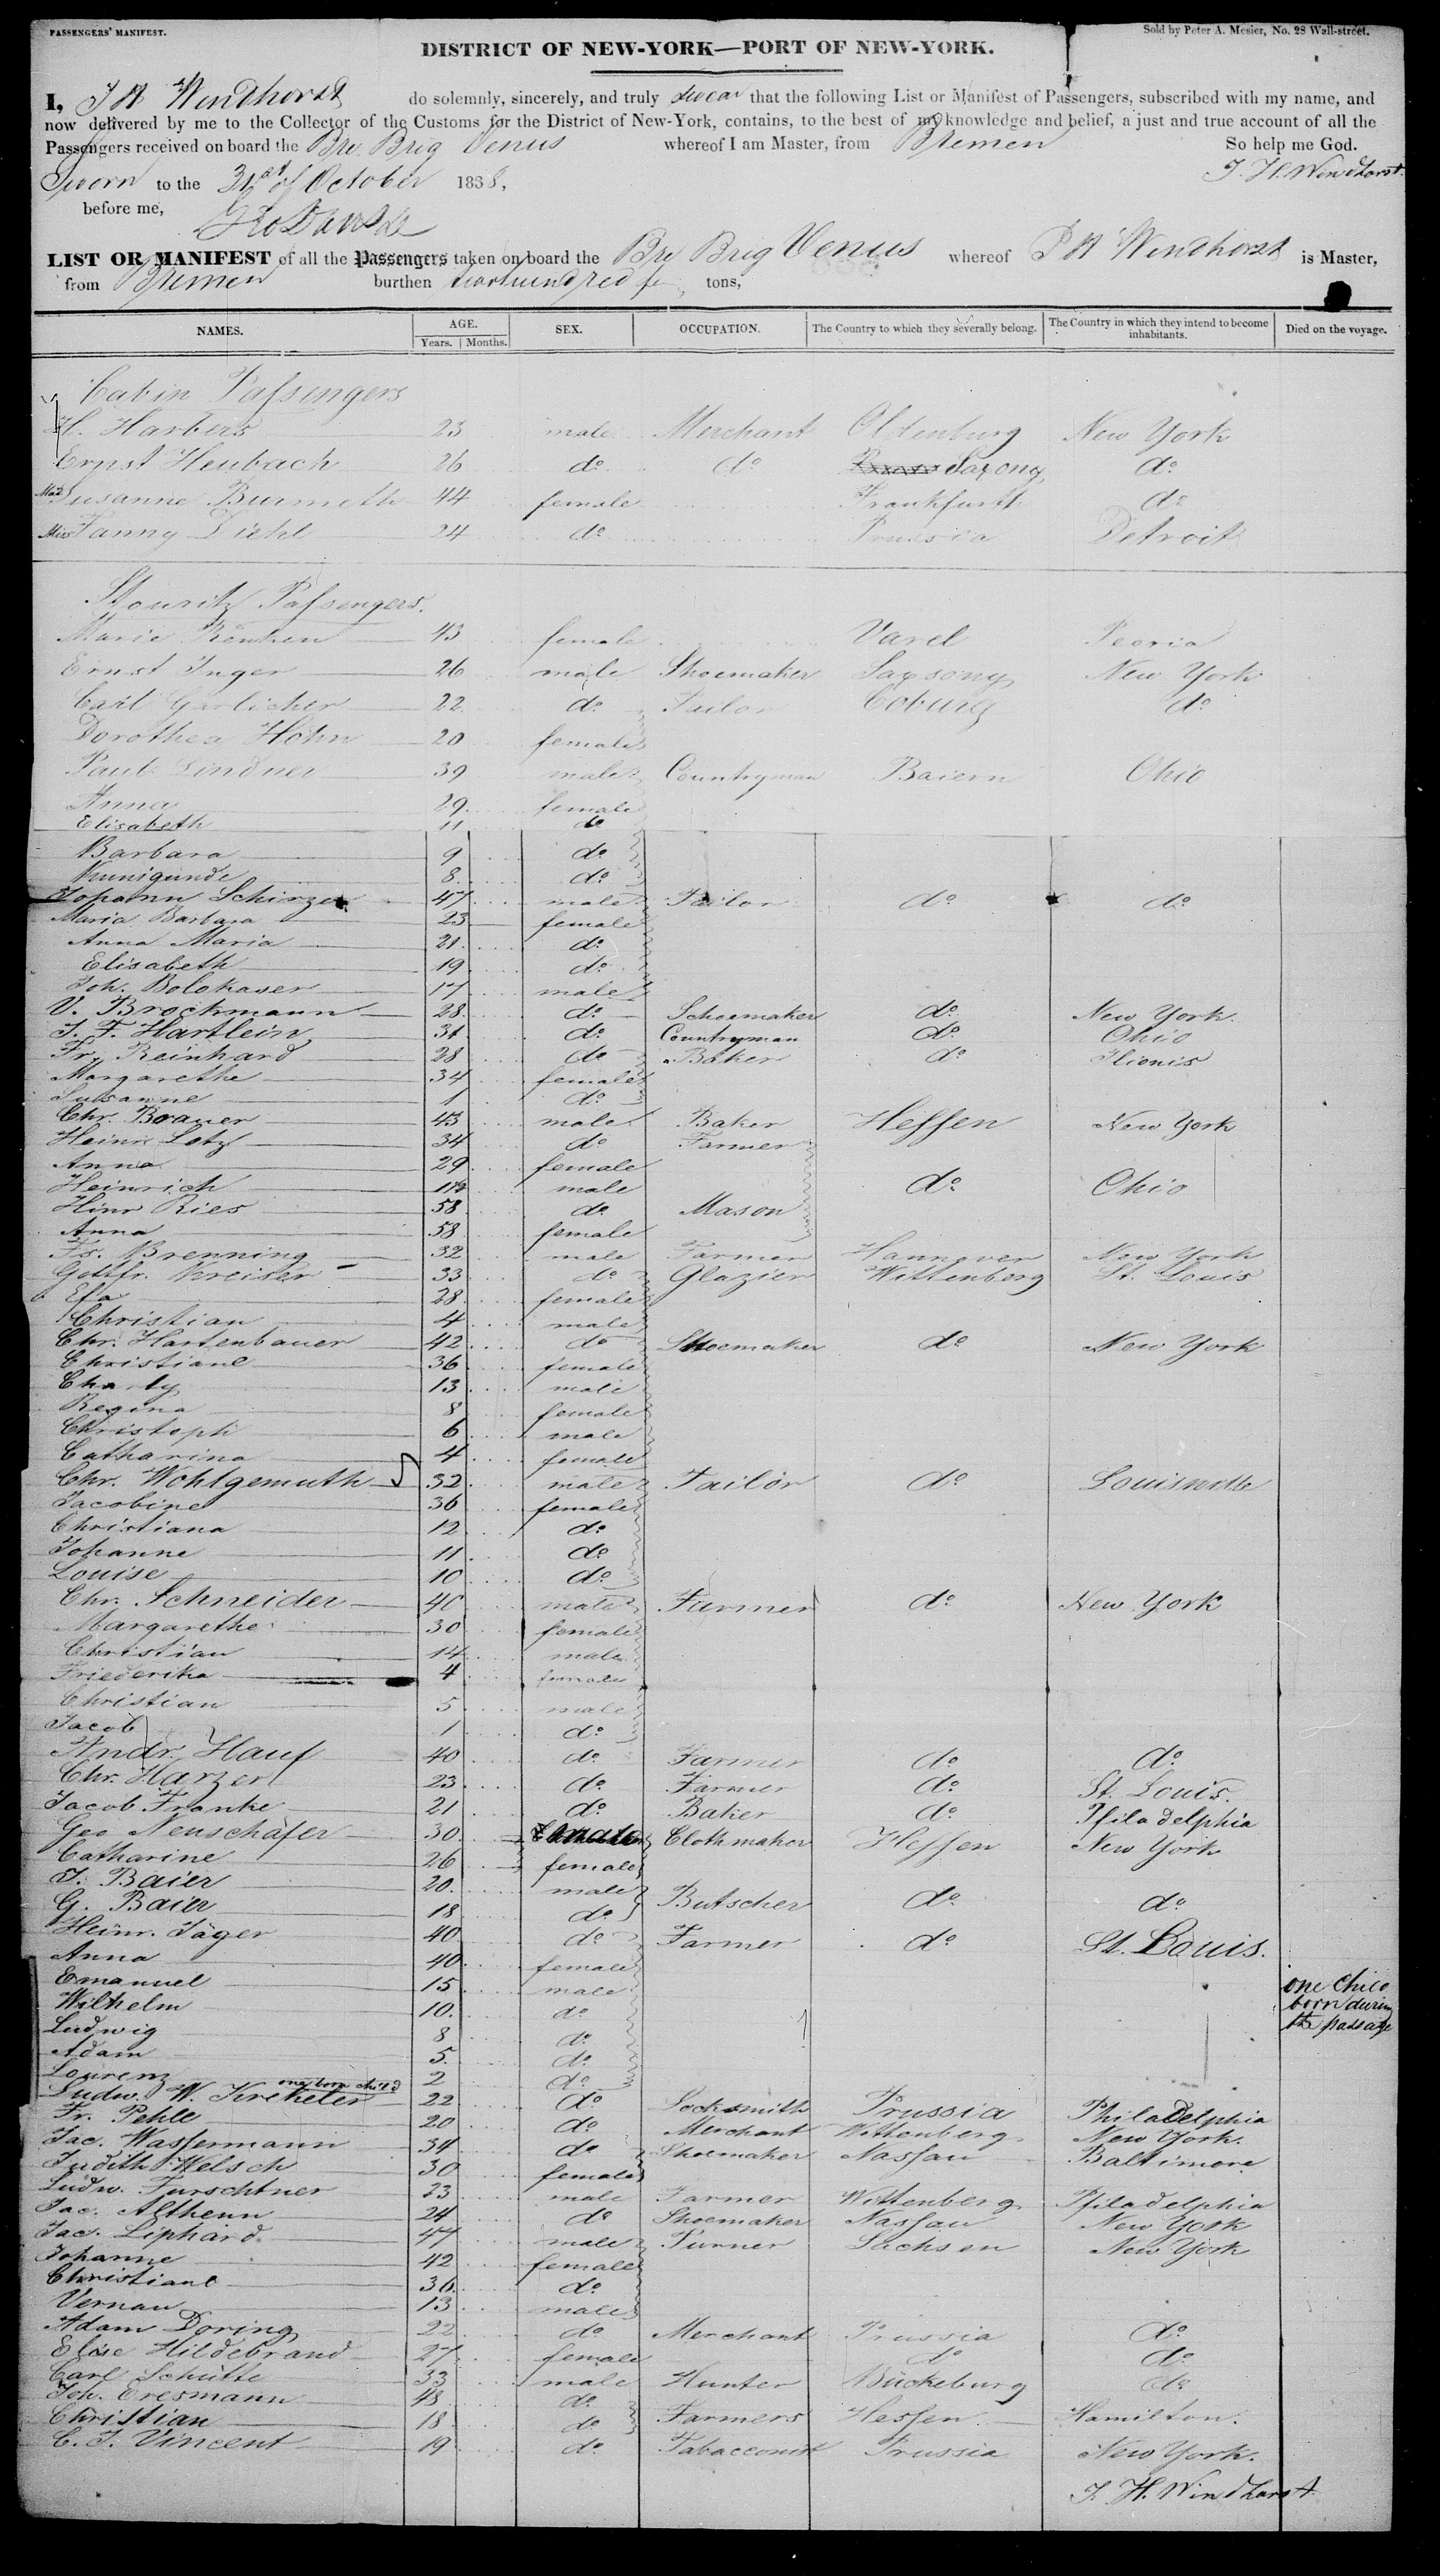 PASSENGERS' MANIFEST. Sold by Peter A. Mesier, No. 28 Wall-street.
DISTRICT OF NEW-YORK—PORT OF NEW-YORK.
I, J H Windhorst do solemnly, sincerely, and truly swear that the following List or Manifest of Passengers, subscribed with my name, and
now delivered by me to the Collector of the Customs for the District of New-York, contains, to the best of my knowledge and belief, a just and true account of all the
Passengers received on board the Bre Brig Venus whereof I am Master, from Bremen So help me God.
Sworn to the 31st of October 1838, J. H. Windhorst
before me,
LIST OR MANIFEST of all the Passengers taken on board the Bre Brig Venus whereof J H Windhorst is Master,
from Bremen burthen two hundred tons,
NAMES. AGE. SEX. OCCUPATION. The Country to which they severally belong. The Country in which they intend to become inhabitants. Died on the voyage.
Years. Months.
Cabin Passengers
H. Harbers 23 male Merchant Oldenburg New York
Ernst Heubach 26 do. do Saxony do.
Mad Susanne 44 female Frankfurth do.
Miss Fanny Diehl 24 do. Prussia Detroit
Passengers.
Marie 43 female Varel Peoria
Ernst Inger 26 male Shoemaker Saxsony New York
Carl Garlicher 22 do. Tailor Coburg do.
Dorothea Höhn 20 female
Paul Lindner 39 male Countryman Baiern Ohio
Anna 29 female
Elisabeth 11 do
Barbara 9 do.
Kunigunde 8 do.
Johann 47 male Tailor do. do.
Maria Barbara 23 female
Anna Maria 21 do.
Elisabeth 19 do.
Joh. 17 male
V. Brochmann 28 do. Schoemaker do. New York.
J. F. Hartlein 31 do. Countryman do. Ohio
Fr. Reinhard 28 do Baker do Ilionis
Margarethe 34 female
Susanne 1 do.
Chr. Brauer 43 male Baker Hessen New York
Heinr Lotz 34 do Farmer
Anna 29 female
Heinrich male do. Ohio
Hinr Ries 58 do. Mason
Anna 58 female
Fr. Brenning 32 male Farmer Hannover New York
Gottfr. Kreiser 33 do. Glazier Wittenberg St. Louis
Efa 28 female
Christian 4 male
Chr. Hartenbauer 42 do Shoemaker do. New York
Christiane 36 female
Charly 13 male
Regina 8 female
Christoph 6 male
Catharina 4 female
Chr. Wohlgemuth 32 male Tailor do. Louisville
Jacobine 36 female
Christiana 12 do.
Johanne 11 do.
Louise 10 do.
Chr. Schneider 40 male Farmer do. New York
Margarethe 30 female
Christian 14 male
Friederika 4 female
Christian 5 male
Jacob 1 do.
Andr. Hauf 40 do. Farmer do. do.
Chr. Harzer 23 do. Farmer do. St. Louis.
Jacob Franke 21 do. Baker do. Pfiladelphia
Geo Neuschäfer 30 male Clothmaker Hessen New York
Catharine 26 female
J. Baier 20 male Butscher do. do.
G. Baier 18 do.
Heinr. Jäger 40 do Farmer do. St. Louis.
Anna 40 female
Emanuel 15 male one child
Wilhelm 10 do. born during
Ludwig 8 do. the passage
Adam 5 do.
Lourenz 2 do. one born child
Ludw. W. Kreheler 22 do. Locksmith Prussia Philadelphia
Fr. Pehle 20 do. Merchant Wittenberg New York.
Jac. Wassermann 34 do Shoemaker Nassau Baltimore
Judith Welsch 30 female
Ludw. Furschtner 23 male Farmer Wittenberg Pfiladelphia
Jac. Althenn 24 do. Shoemaker Nassau New York
Jac. Liphard 47 male Turner Sachsen New York
Johanne 42 female
Christiane 36 do.
Vernau 13 male
Adam Doring 22 do. Merchant Prussia do.
Elise Hildebrand 27 female do do.
Carl Schütte 33 male Hunter Bückeburg do.
Joh. Eresmann 48 do. Farmers Hessen Hamilton.
Christian 18 do.
C. J. Vincent 19 do. Tabacconist Prussia New York.
J. H. Windhorst